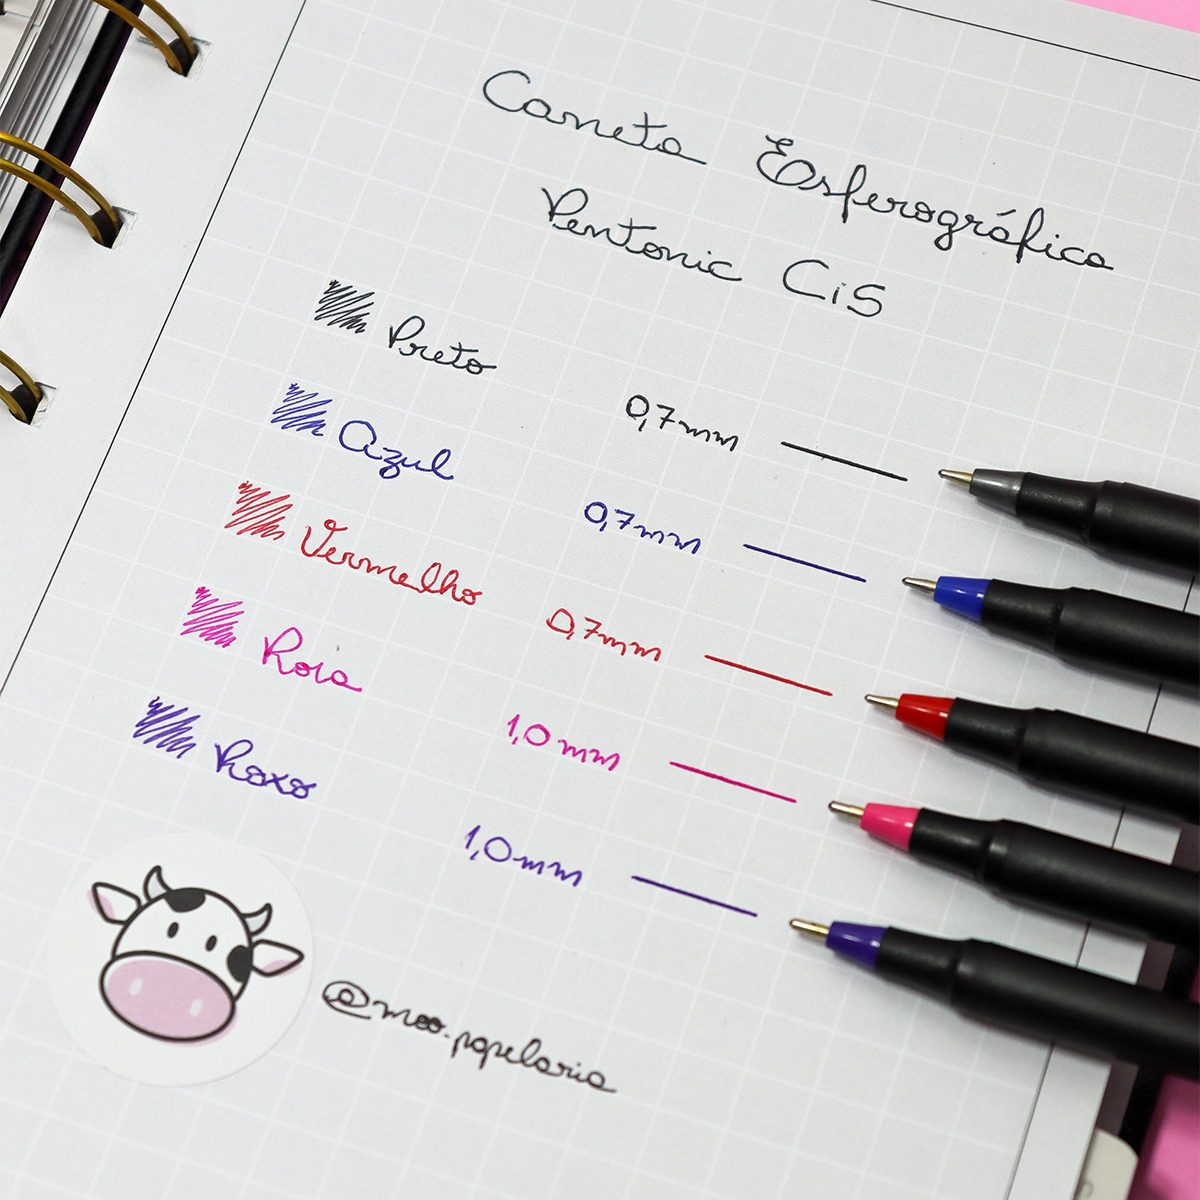 Caneta Esferográfica
Pentonic CiS
Preto 0,7mm
Azul 0,7mm
Vermelho 0,7mm
Rosa 1,0mm
Roxo 1,0mm
@moo.papelaria